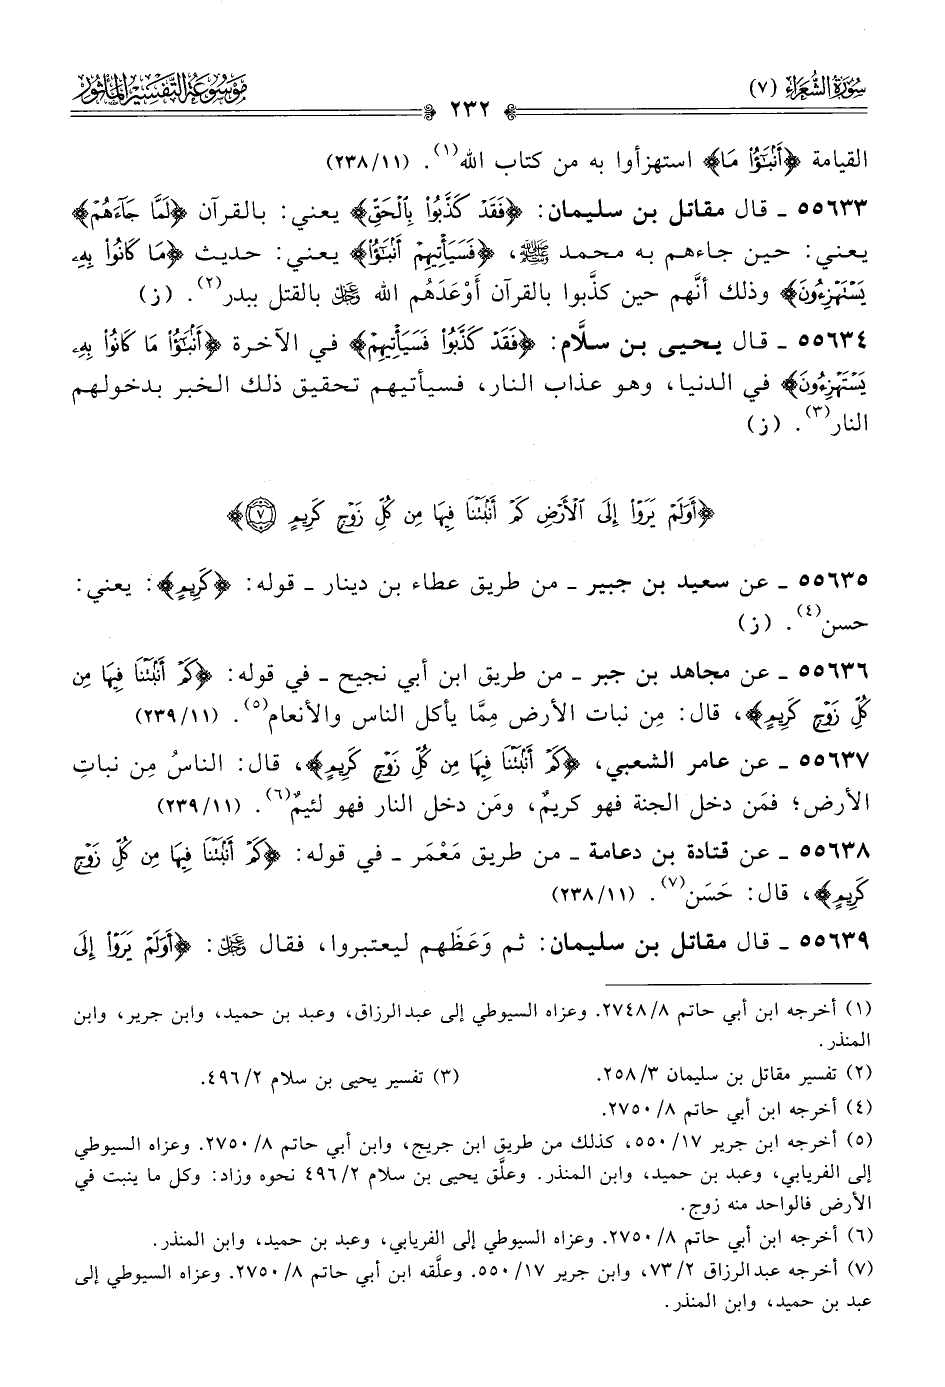 سُورَةُ الشُّعَرَاءِ (٧)
٢٣٢
مَوْسُوعَةُ التَّفْسِيرِ المَأْثُورِ
القيامة ﴿أَنۢبَٰٓؤُاْ مَا﴾ استهزأوا به من كتاب الله(١). (٢٣٨/١١)
٥٥٦٣٣ ـ قال مقاتل بن سليمان: ﴿فَقَدۡ كَذَّبُواْ بِٱلۡحَقِّ﴾ يعني: بالقرآن ﴿لَمَّا جَآءَهُمۡ﴾
يعني: حين جاءهم به محمد ﷺ، ﴿فَسَيَأۡتِيهِمۡ أَنۢبَٰٓؤُاْ﴾ يعني: حديث ﴿مَا كَانُواْ بِهِۦ
يَسۡتَهۡزِءُونَ﴾ وذلك أنَّهم حين كذَّبوا بالقرآن أَوْعَدَهُم الله ﷿ بالقتل ببدر(٢). (ز)
٥٥٦٣٤ ـ قال يحيى بن سلَّام: ﴿فَقَدۡ كَذَّبُواْ فَسَيَأۡتِيهِمۡ﴾ في الآخرة ﴿أَنۢبَٰٓؤُاْ مَا كَانُواْ بِهِۦ
يَسۡتَهۡزِءُونَ﴾ في الدنيا، وهو عذاب النار، فسيأتيهم تحقيق ذلك الخبر بدخولهم
النار(٣). (ز)
﴿أَوَلَمۡ يَرَوۡاْ إِلَى ٱلۡأَرۡضِ كَمۡ أَنۢبَتۡنَا فِيهَا مِن كُلِّ زَوۡجٖ كَرِيمٍ ٧﴾
٥٥٦٣٥ ـ عن سعيد بن جبير ـ من طريق عطاء بن دينار ـ قوله: ﴿كَرِيمٍ﴾: يعني:
حسن(٤). (ز)
٥٥٦٣٦ ـ عن مجاهد بن جبر ـ من طريق ابن أبي نجيح ـ في قوله: ﴿كَمۡ أَنۢبَتۡنَا فِيهَا مِن
كُلِّ زَوۡجٖ كَرِيمٍ﴾، قال: مِن نبات الأرض مِمَّا يأكل الناس والأنعام(٥). (٢٣٩/١١)
٥٥٦٣٧ ـ عن عامر الشعبي، ﴿كَمۡ أَنۢبَتۡنَا فِيهَا مِن كُلِّ زَوۡجٖ كَرِيمٍ﴾، قال: الناسُ مِن نباتِ
الأرض؛ فمَن دخل الجنة فهو كريمٌ، ومَن دخل النار فهو لئيمٌ(٦). (٢٣٩/١١)
٥٥٦٣٨ ـ عن قتادة بن دعامة ـ من طريق مَعْمَر ـ في قوله: ﴿كَمۡ أَنۢبَتۡنَا فِيهَا مِن كُلِّ زَوۡجٖ
كَرِيمٍ﴾، قال: حَسَن(٧). (٢٣٨/١١)
٥٥٦٣٩ ـ قال مقاتل بن سليمان: ثم وَعَظَهم ليعتبروا، فقال ﷿: ﴿أَوَلَمۡ يَرَوۡاْ إِلَى
(١) أخرجه ابن أبي حاتم ٢٧٤٨/٨. وعزاه السيوطي إلى عبدالرزاق، وعبد بن حميد، وابن جرير، وابن
المنذر.
(٢) تفسير مقاتل بن سليمان ٢٥٨/٣. (٣) تفسير يحيى بن سلام ٤٩٦/٢.
(٤) أخرجه ابن أبي حاتم ٢٧٥٠/٨.
(٥) أخرجه ابن جرير ٥٥٠/١٧، كذلك من طريق ابن جريج، وابن أبي حاتم ٢٧٥٠/٨. وعزاه السيوطي
إلى الفريابي، وعبد بن حميد، وابن المنذر. وعلَّق يحيى بن سلام ٤٩٦/٢ نحوه وزاد: وكل ما ينبت في
الأرض فالواحد منه زوج.
(٦) أخرجه ابن أبي حاتم ٢٧٥٠/٨. وعزاه السيوطي إلى الفريابي، وعبد بن حميد، وابن المنذر.
(٧) أخرجه عبدالرزاق ٧٣/٢، وابن جرير ٥٥٠/١٧. وعلَّقه ابن أبي حاتم ٢٧٥٠/٨. وعزاه السيوطي إلى
عبد بن حميد، وابن المنذر.